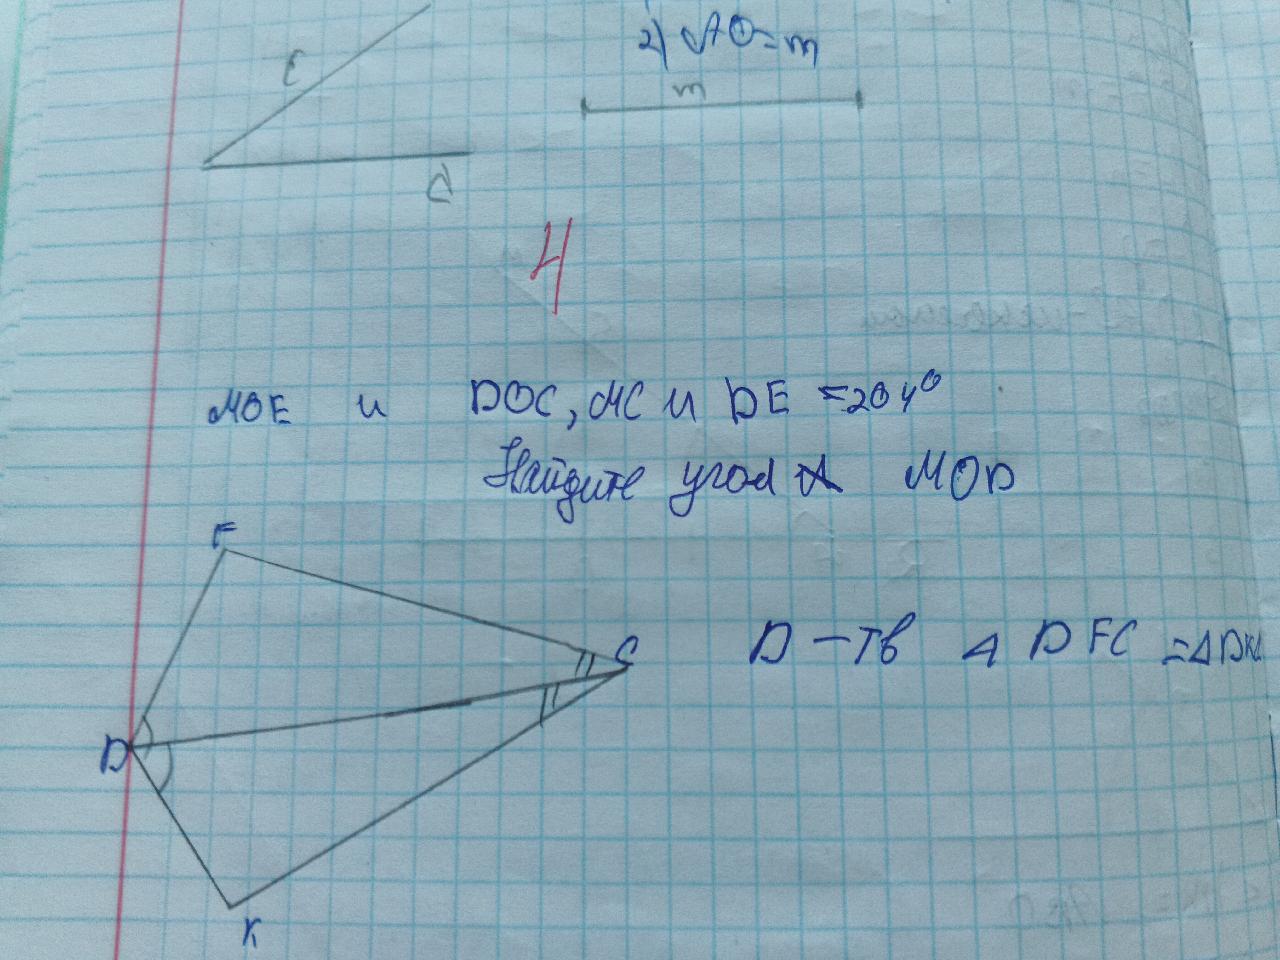 2) AO=m
m
C
4
MOE и DOC, MC и DE =204°
Найдите угол MOD
F
C
D – тв Δ DFC =Δ DKC
D
K